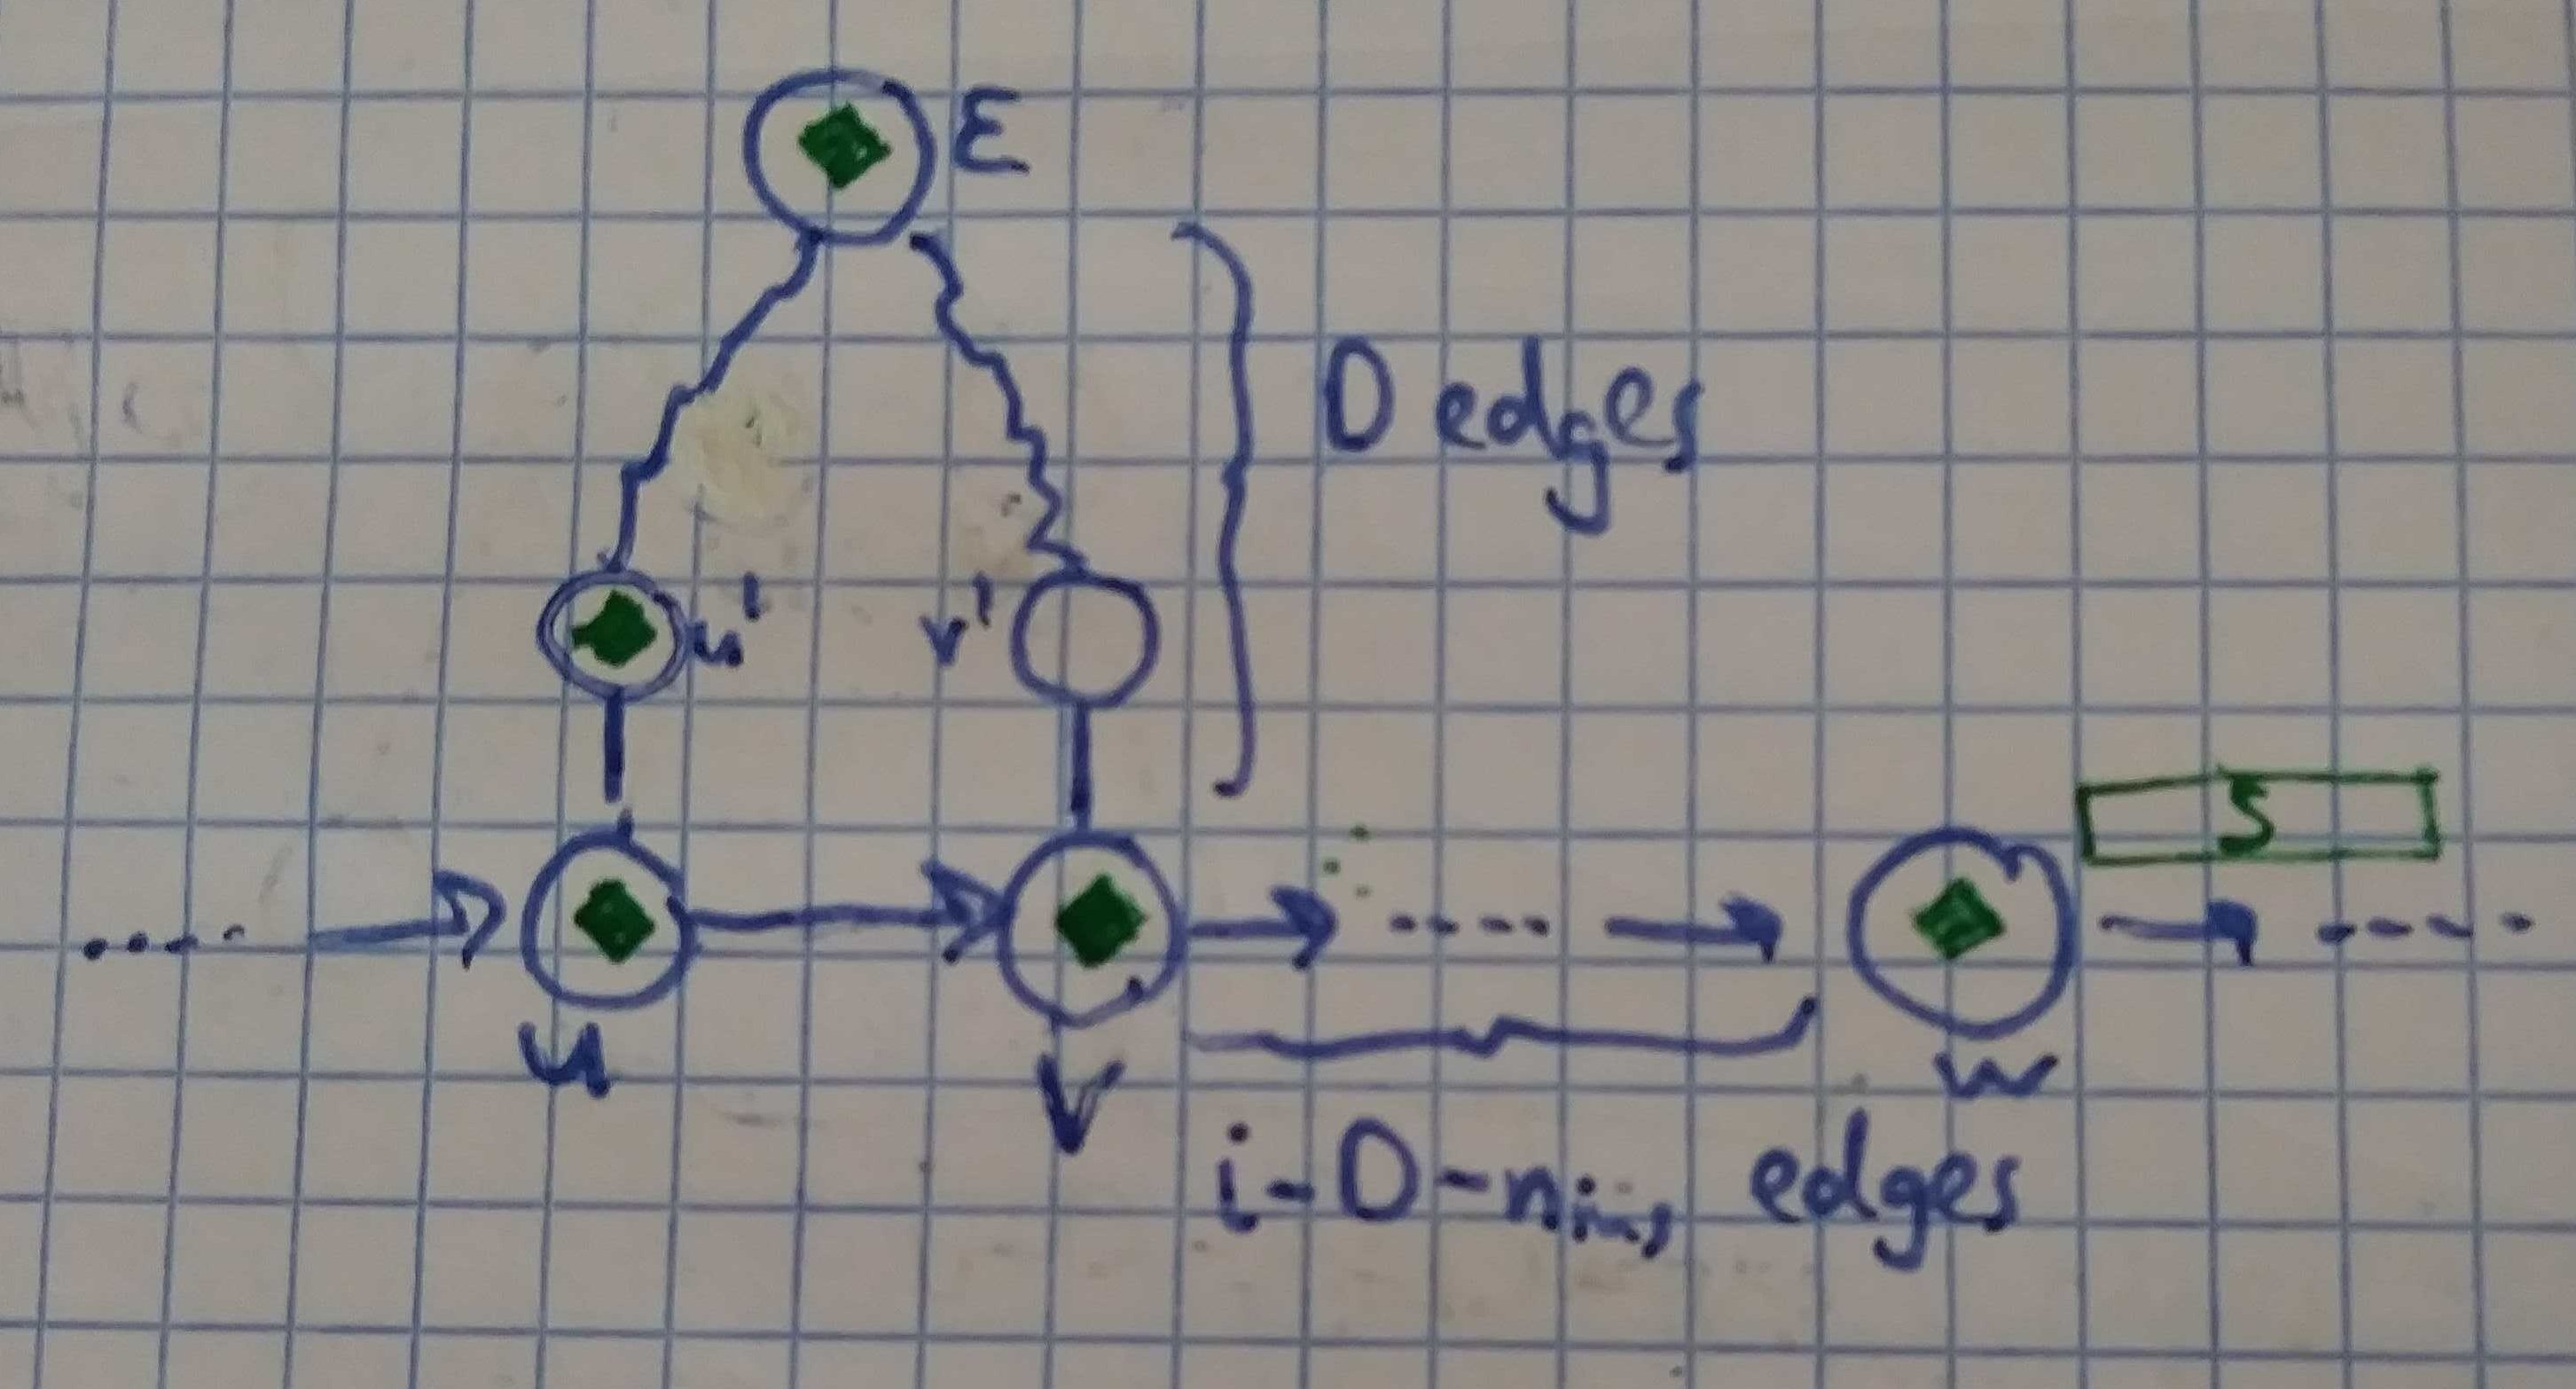 ε
D edges
u'
v'
S
u
v
w
i-D-n edges